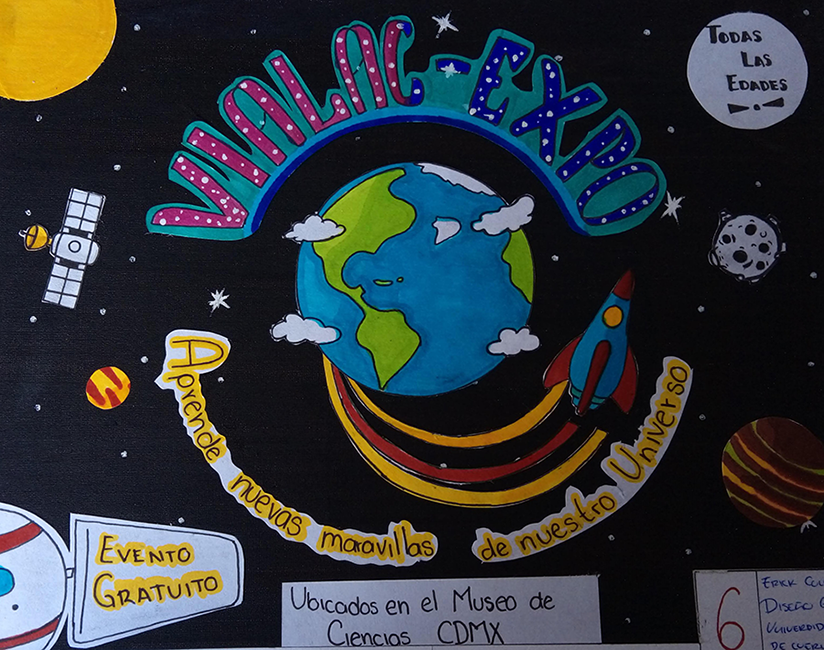 VIALAC-EXPO
TODAS
LAS
EDADES
Aprende nuevas maravillas de nuestro Universo
EVENTO
GRATUITO
Ubicados en el Museo de
Ciencias CDMX
6
ERICK
DISEÑO
DE